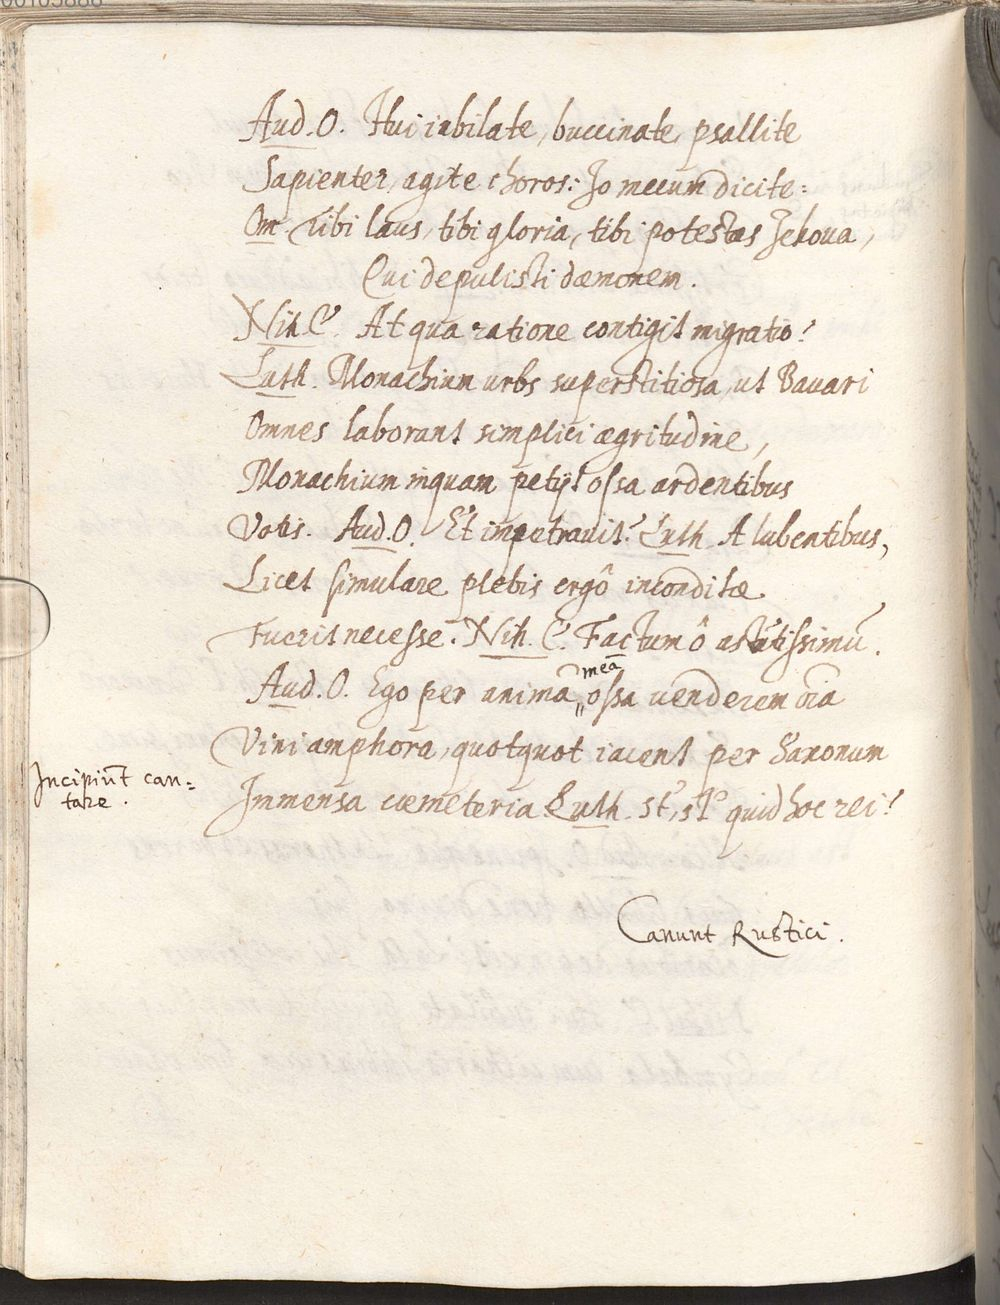 Aud. O. Hui iubilate, buccinate, psallite
Sapienter, agite choros: Jo mecum dicite:
Om. Tibi laus, tibi gloria, tibi potestas Jehoua,
Qui depulisti dæmonem.
Nih. C. At qua ratione contigit migratio?
Luth. Monachium urbs superstitiosa, ut Bauari
Omnes laborant simplici ægritudine,
Monachium inquam petijt ossa ardentibus
Votis. Aud. O. Et impetrauit? Luth. A lubentibus,
Licet simulare plebis ergô inconditæ
Fuerit necesse. Nih. C. Factum ô astutissimū.
Aud. O. Ego per animā meā ossa uenderem oīa
Vini amphora, quotquot iacent per Saxonum
Incipiūt can-
tare.
Immensa cœmeteria Luth. st, st quid hoc rei?
Canunt Rustici.